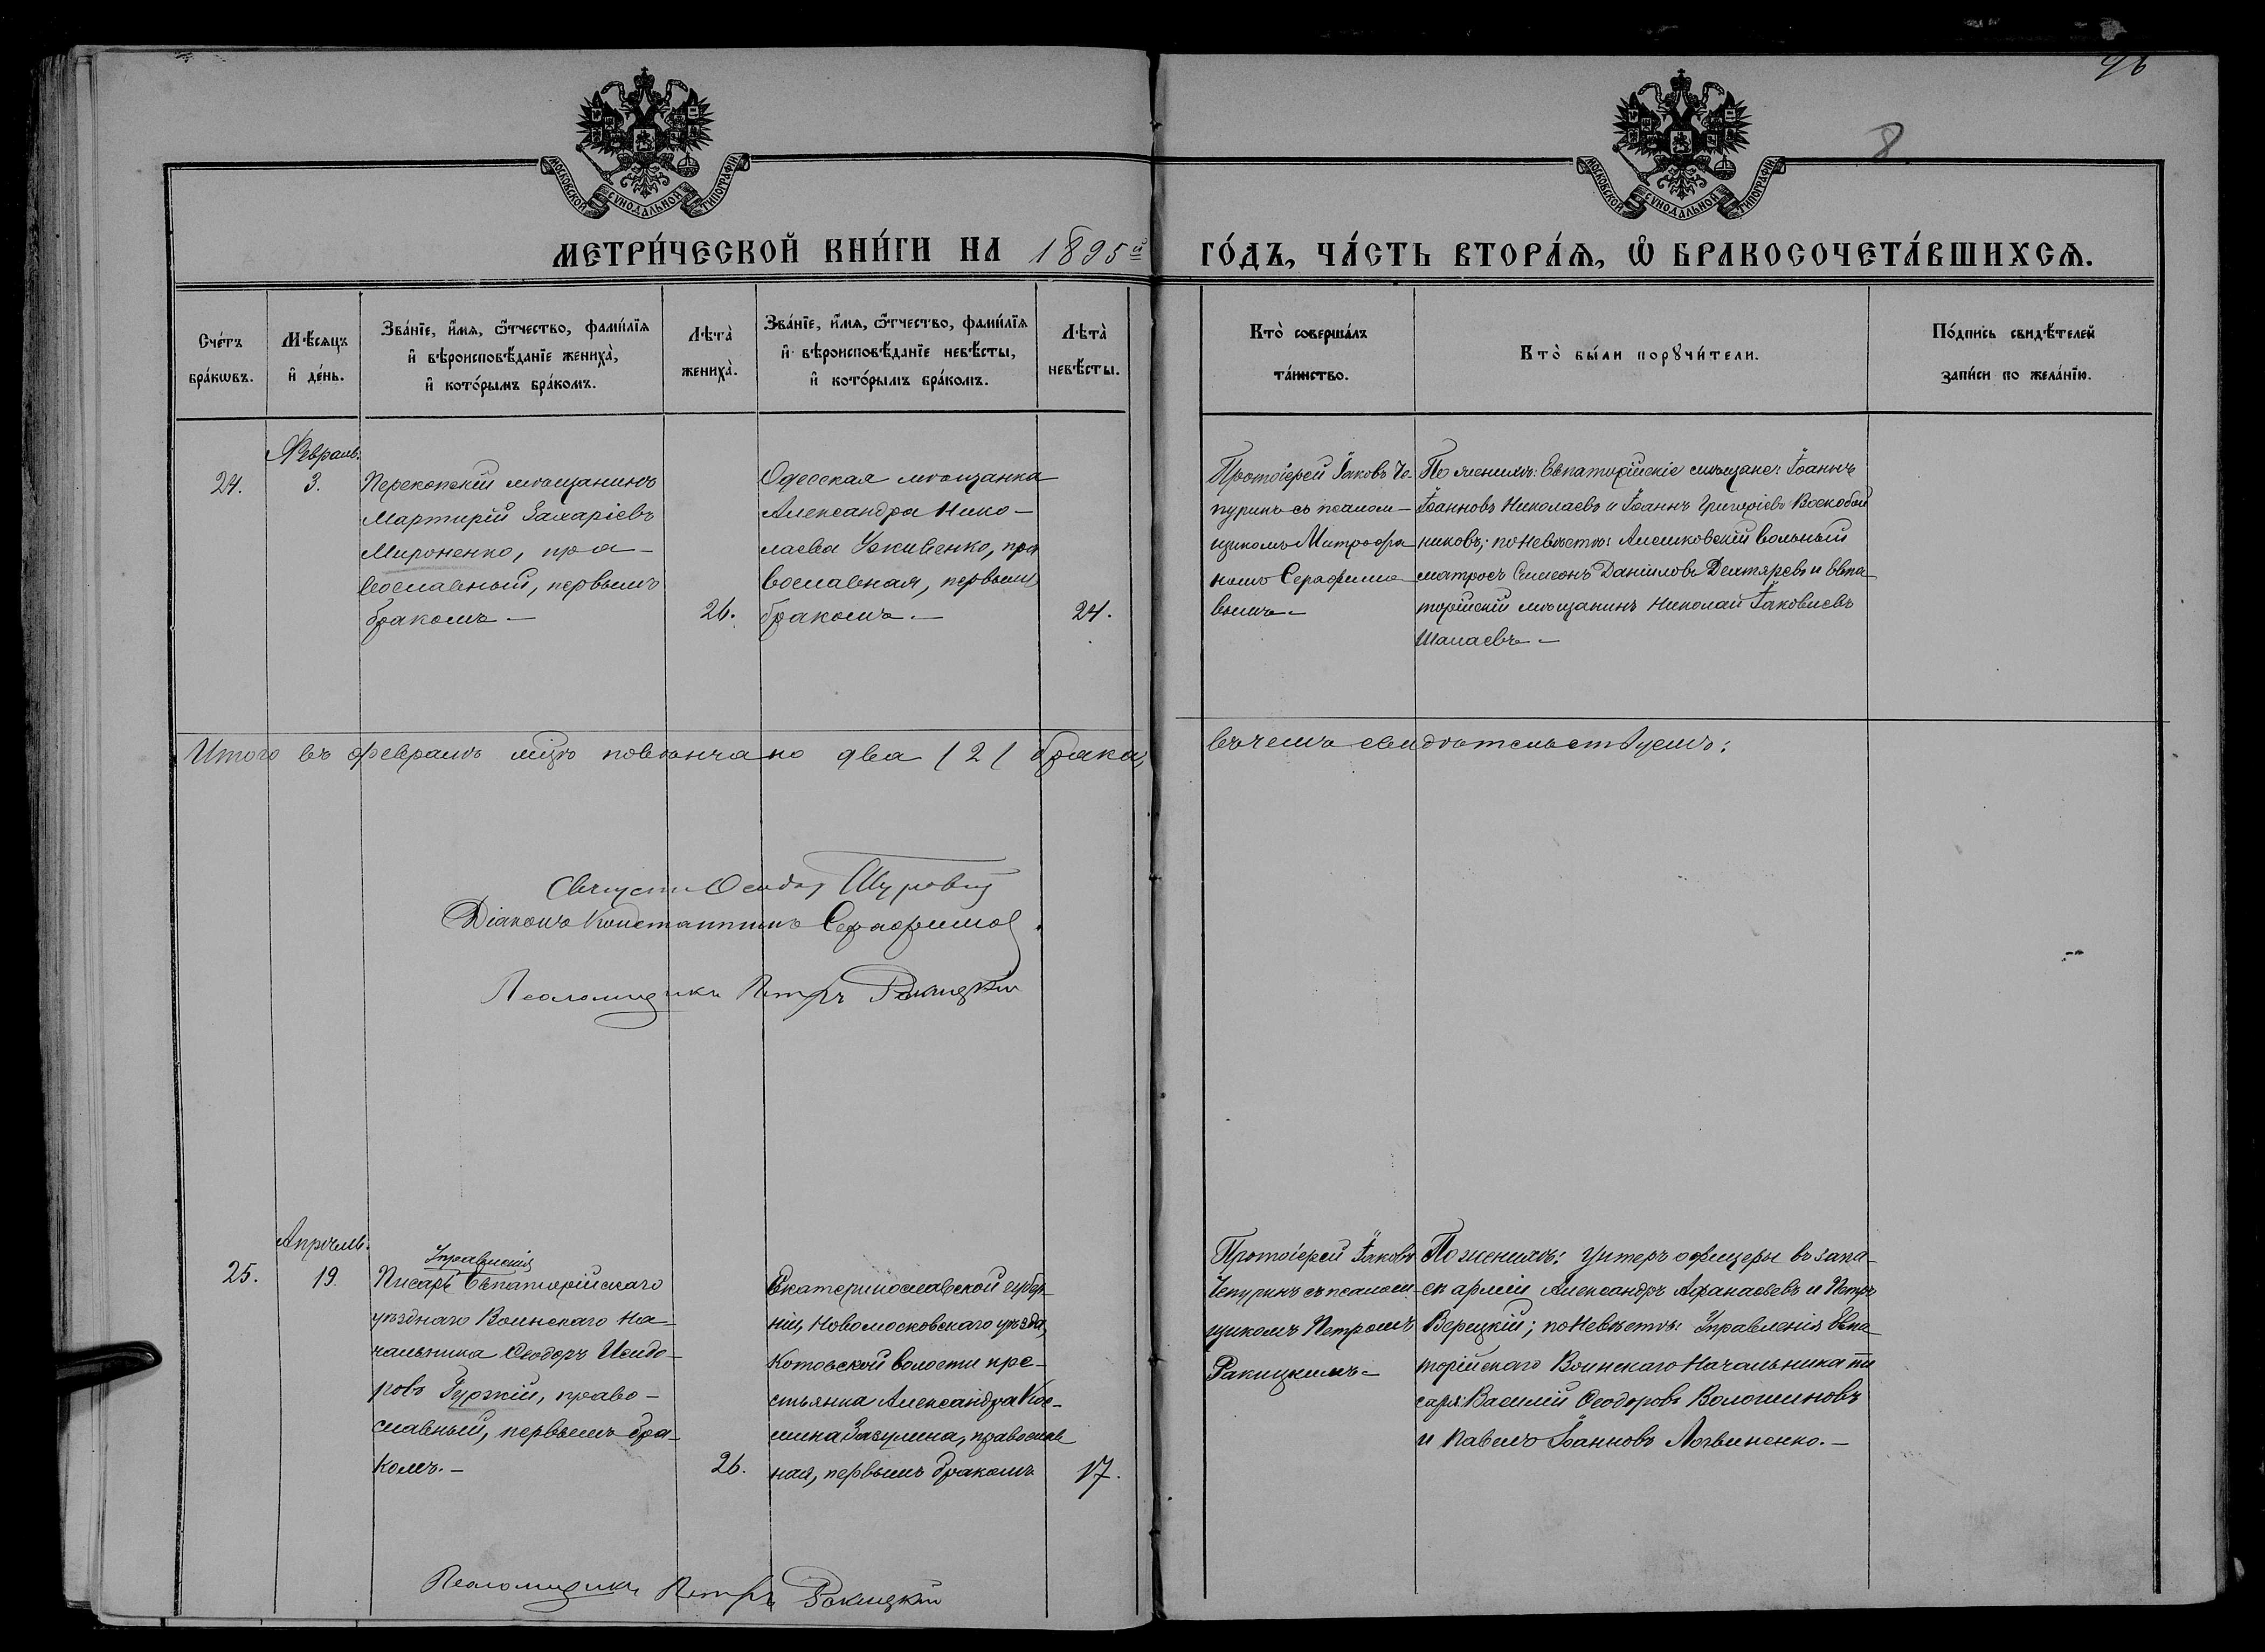 96
8
МОСКОВСКОЙ СѴНОДАЛЬНОЙ ТИПОГРАФІИ
МОСКОВСКОЙ СѴНОДАЛЬНОЙ ТИПОГРАФІИ
МЕТРИ́ЧЕСКОЙ КНИ́ГИ НА 1895й ГО́ДЪ, ЧА́СТЬ ВТОРА́Ѧ, Ѡ БРАКОСОЧЕТА́ВШИХСѦ.
Сче́тъ
бра́кѡвъ.
Мѣ́сѧцъ
и҆ де́нь.
Зва́нїе, и҆́мѧ, ѻ҆́тчество, фами́лїѧ
и҆ вѣроисповѣ́данїе жениха̀,
и҆ кото́рымъ бра́комъ.
Лѣта̀
жениха̀.
Зва́нїе, и҆́мѧ, ѻ҆́тчество, фами́лїѧ
и҆ вѣроисповѣ́данїе невѣ́сты,
и҆ кото́рымъ бра́комъ.
Лѣта̀
невѣ́сты.
Кто̀ соверша́лъ
та́инство.
Кто̀ бы́ли порꙋчи́тели.
По́дпись свидѣ́телей
запи́си по жела́нїю.
Февраль.
24.
3.
Перекопскій мѣщанинъ
Мартирій Захаріевъ
Мироненко, пра-
вославный, первымъ
бракомъ.-
26.
Одесская мѣщанка
Александра Нико-
лаева Ускивенко, пра
вославная, первымъ
бракомъ.-
24.
Протоіерей Іаковъ Че-
пуринъ съ псалом-
щикомъ Митрофа
номъ Серафимо
вымъ-
По женихѣ: Евпаторійскіе мѣщане: Іоаннъ
Іоанновъ Николаевъ и Іоаннъ Григоріевъ Воскобой
никовъ; по невѣстѣ: Алешковскій вольный
матросъ Симеонъ Даніиловъ Дехтяревъ и Евпа-
торійскій мѣщанинъ Николай Іаковлевъ
Шалаевъ-
Итого въ февралѣ мцѣ повѣнчано два (2) брака,
въ чемъ свидѣтельствуемъ:
Діаконъ Константинъ Серафимов
Псаломщикъ Петръ Ракицкій
Апрѣль.
25.
19.
Управленія
Писарь Евпаторійскаго
уѣзднаго Воинскаго На-
чальника Ѳеодоръ Исидо-
ровъ Гуржій, право-
славный, первымъ бра-
комъ.-
26.
Екатеринославской губер-
ніи, Новомосковскаго уѣзда,
Котовской волости кре-
стьянка Александра Кос-
мина Зазулина, православ
ная, первымъ бракомъ
17.
Протоіерей Іаковъ
Чепуринъ съ псалом-
щикомъ Петромъ
Ракицкимъ-
По женихѣ: Унтеръ офицеры въ запа-
сѣ арміи Александръ Афанасьевъ и Петръ
Верецкій; по невѣстѣ: Управленія Евпа-
торійскаго Воинскаго Начальника пи
саря: Василій Ѳеодоровъ Волошиновъ
и Павелъ Іоанновъ Логвиненко.-
Псаломщикъ Петръ Ракицкій